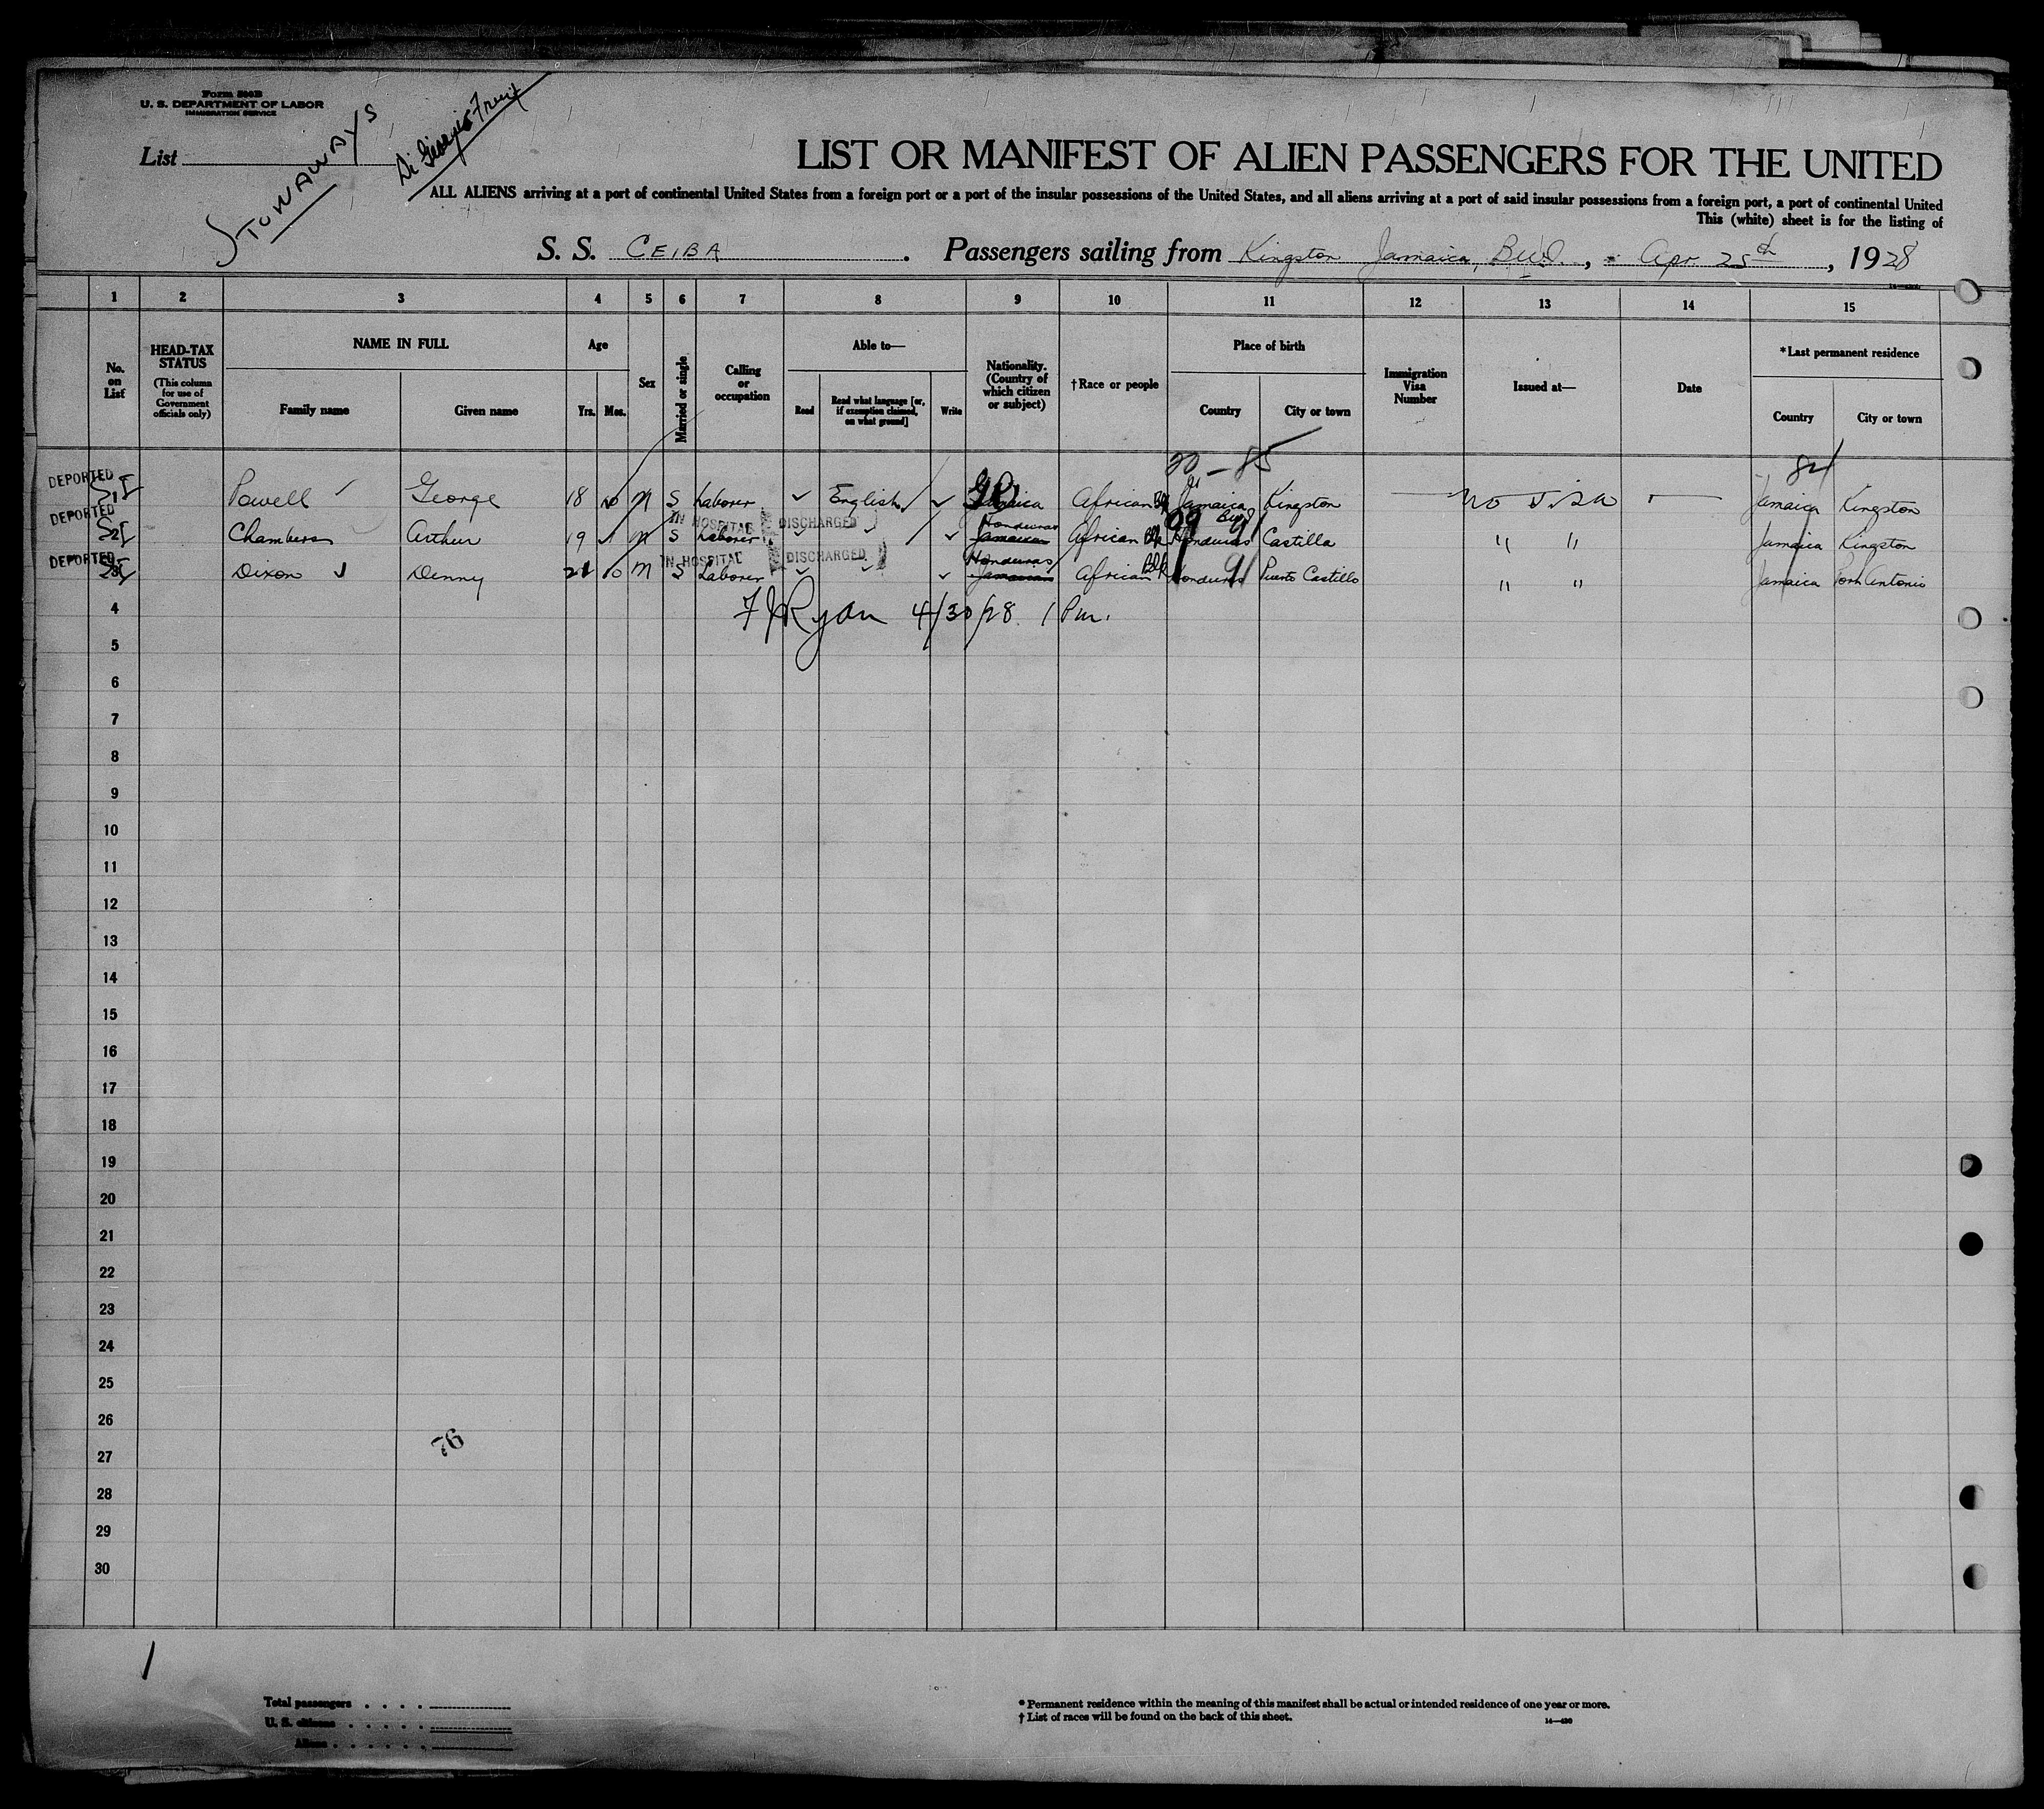 Form 500B
U. S. DEPARTMENT OF LABOR
IMMIGRATION SERVICE
List
STOWAWAYS
Di Giorgio Fruit
LIST OR MANIFEST OF ALIEN PASSENGERS FOR THE UNITED
ALL ALIENS arriving at a port of continental United States from a foreign port or a port of the insular possessions of the United States, and all aliens arriving at a port of said insular possessions from a foreign port, a port of continental United
This (white) sheet is for the listing of
S. S. CEIBA . Passengers sailing from Kingston Jamaica, B.W.I., Apr 25th, 1928
1 2 3 4 5 6 7 8 9 10 11 12 13 14 15
No. on List
HEAD-TAX STATUS
(This column for use of Government officials only)
NAME IN FULL
Family name
Given name
Age
Yrs.
Mos.
Sex
Married or single
Calling or occupation
Able to—
Read
Read what language [or, if exemption claimed, on what ground]
Write
Nationality. (Country of which citizen or subject)
†Race or people
Place of birth
Country
City or town
Immigration Visa Number
Issued at—
Date
*Last permanent residence
Country
City or town
20 - 85
84
DEPORTED 1 Powell George 18 M S Laborer English Jamaica African Blk Jamaica Kingston no visa Jamaica Kingston
IN HOSPITAL DISCHARGED
DEPORTED 2 Chambers Arthur 19 M S Laborer " Honduras Jamaican African Blk Honduras Castilla " " Jamaica Kingston
IN HOSPITAL DISCHARGED
DEPORTED 3 Dixon Denny 21 M S Laborer " Honduras Jamaican African Blk Honduras Puerto Castillo " " Jamaica Port Antonio
4 F J Ryan 4/30/28. 1 Pm.
5
6
7
8
9
10
11
12
13
14
15
16
17
18
19
20
21
22
23
24
25
26
76
27
28
29
30
1
Total passengers
U. S. citizens
Aliens
* Permanent residence within the meaning of this manifest shall be actual or intended residence of one year or more.
† List of races will be found on the back of this sheet.
14—430